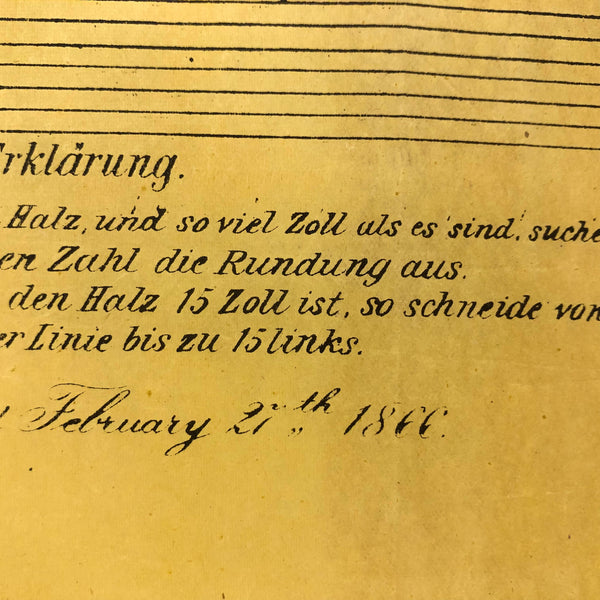 Erklärung.
Halz, und so viel Zoll als es sind, suche
en Zahl die Rundung aus.
den Halz 15 Zoll ist, so schneide von
er Linie bis zu 15 links.
February 27th 1866.